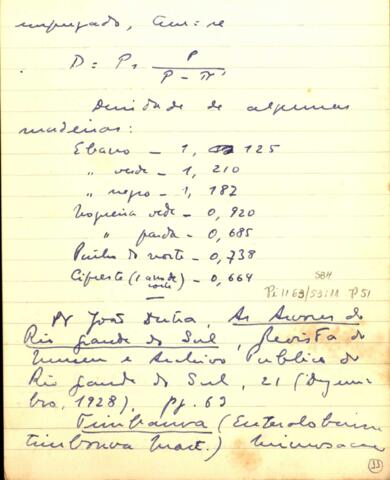 empregado, tem-se
D = P, P / P - π'
Densidade de algumas
madeiras:
Ebano - 1, 125
„ verde - 1, 210
„ negro - 1, 187
Nogueira verde - 0,920
„ parda - 0,685
Pinho do norte - 0,738
Cipreste (1 ano de corte) - 0,664
SBH
Pi 1163/53:11 P51
Pr João Dutra, As Arvores do
Rio Grande do Sul, Revista do
Museu e Archivo Publico do
Rio Grande do Sul, 21 (Dezem-
bro, 1928), pg. 63
Timbauva (Enterolobium
timbouva Mart.) Mimosacea
33